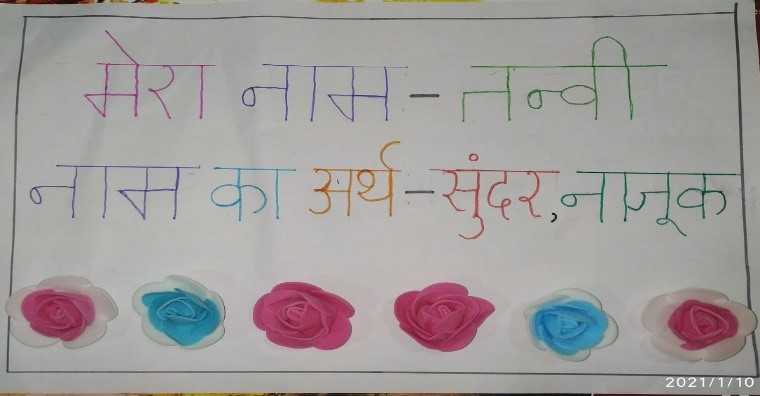 मेरा नाम - तन्वी
नाम का अर्थ - सुंदर, नाजूक
2021/1/10